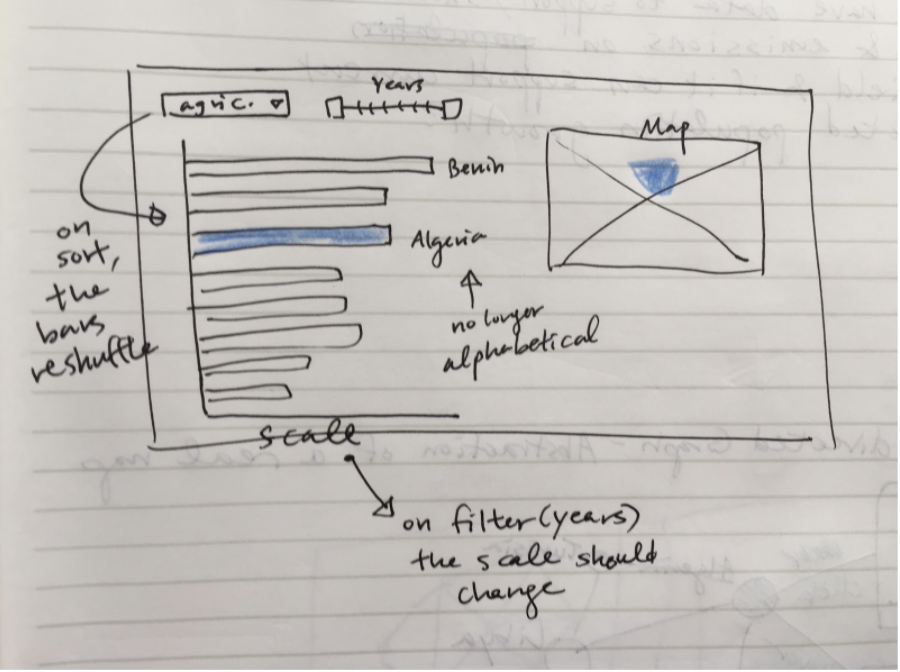 agric.
Years
Map
Benin
Algeria
on
sort,
the
bars
reshuffle
no longer
alphabetical
scale
on filter (years)
the scale should
change